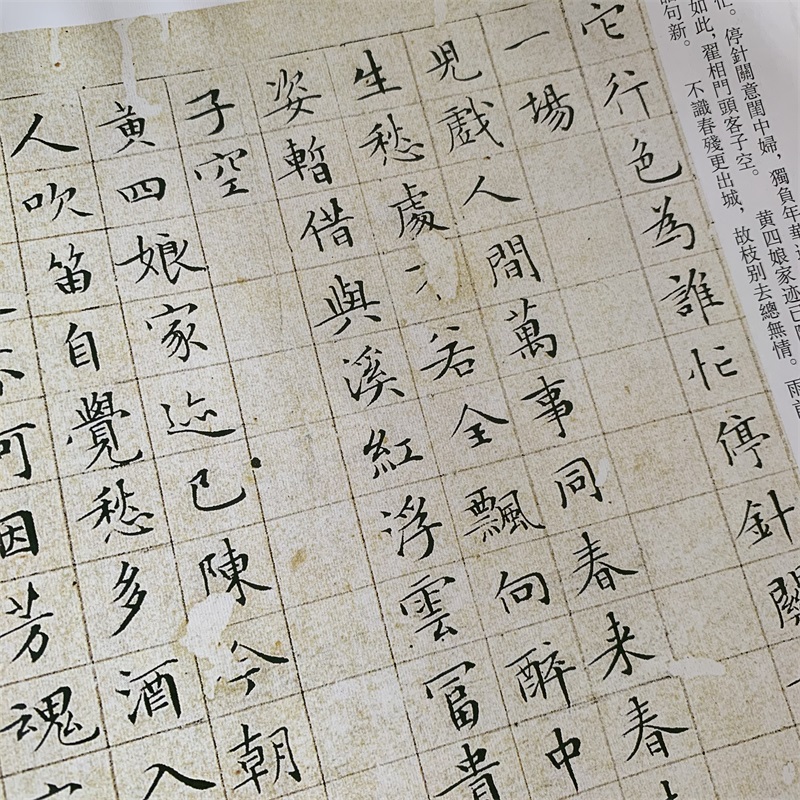 忙。停針關意閨中婦，獨負年華
如此，翟相門頭客子空。 黃四娘家迹已陳
句新。 不識春殘更出城，故枝別去總無情。雨前
它行色為誰忙停針關
一場
兒戲人間萬事同春来春
生愁處若全飄向醉中
姿暫借與溪紅浮雲冨貴
子空
黃四娘家迹已陳今朝
人吹笛自覺愁多酒入
何因芳魂